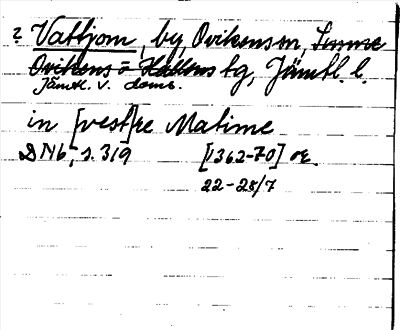 ? Vattjom, by, Ovikens sn, Sunne
Ovikens o Hallens tg, Jämtl. l.
Jämtl. v. doms.
in [vest]re Matime
DN 6, s. 319 [1362-70] or.
22-28/7